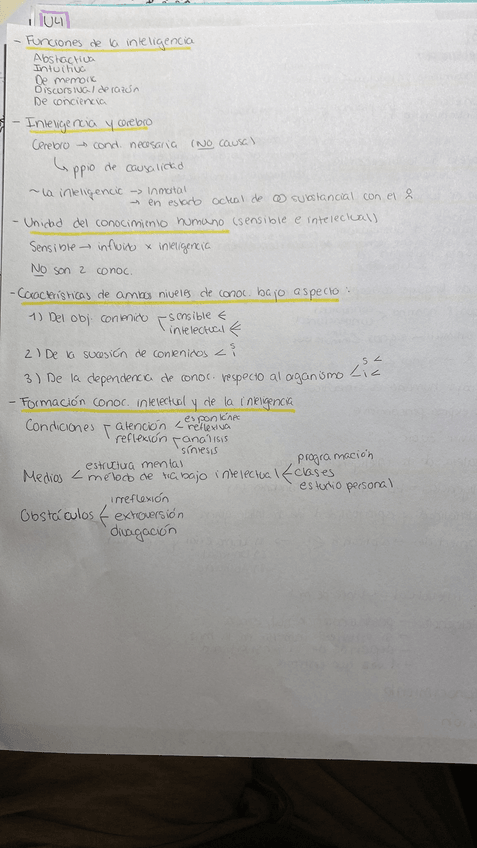 U4
- Funciones de la inteligencia
Abstractiva
Intuitiva
De memoria
Discursiva / de razón
De conciencia
- Inteligencia y cerebro
Cerebro → cond. necesaria (NO causa)
↳ ppio de causalidad
~ la inteligencia → Inmortal
→ en estado actual de substancial con el
- Unidad del conocimiento humano (sensible e intelectual)
Sensible → influido x inteligencia
NO son 2 conoc.
- Características de ambos niveles de conoc. bajo aspecto:
1) Del obj. contenido sensible <
intelectual <
2) De la sucesión de contenidos < s
i
3) De la dependencia de conoc. respecto al organismo < s <
i <
- Formación conoc. intelectual y de la inteligencia
Condiciones atención < espontánea
reflexiva
reflexión análisis
síntesis
Medios < estructura mental
método de trabajo intelectual programación
clases
estudio personal
Obstáculos irreflexión
extroversión
divagación